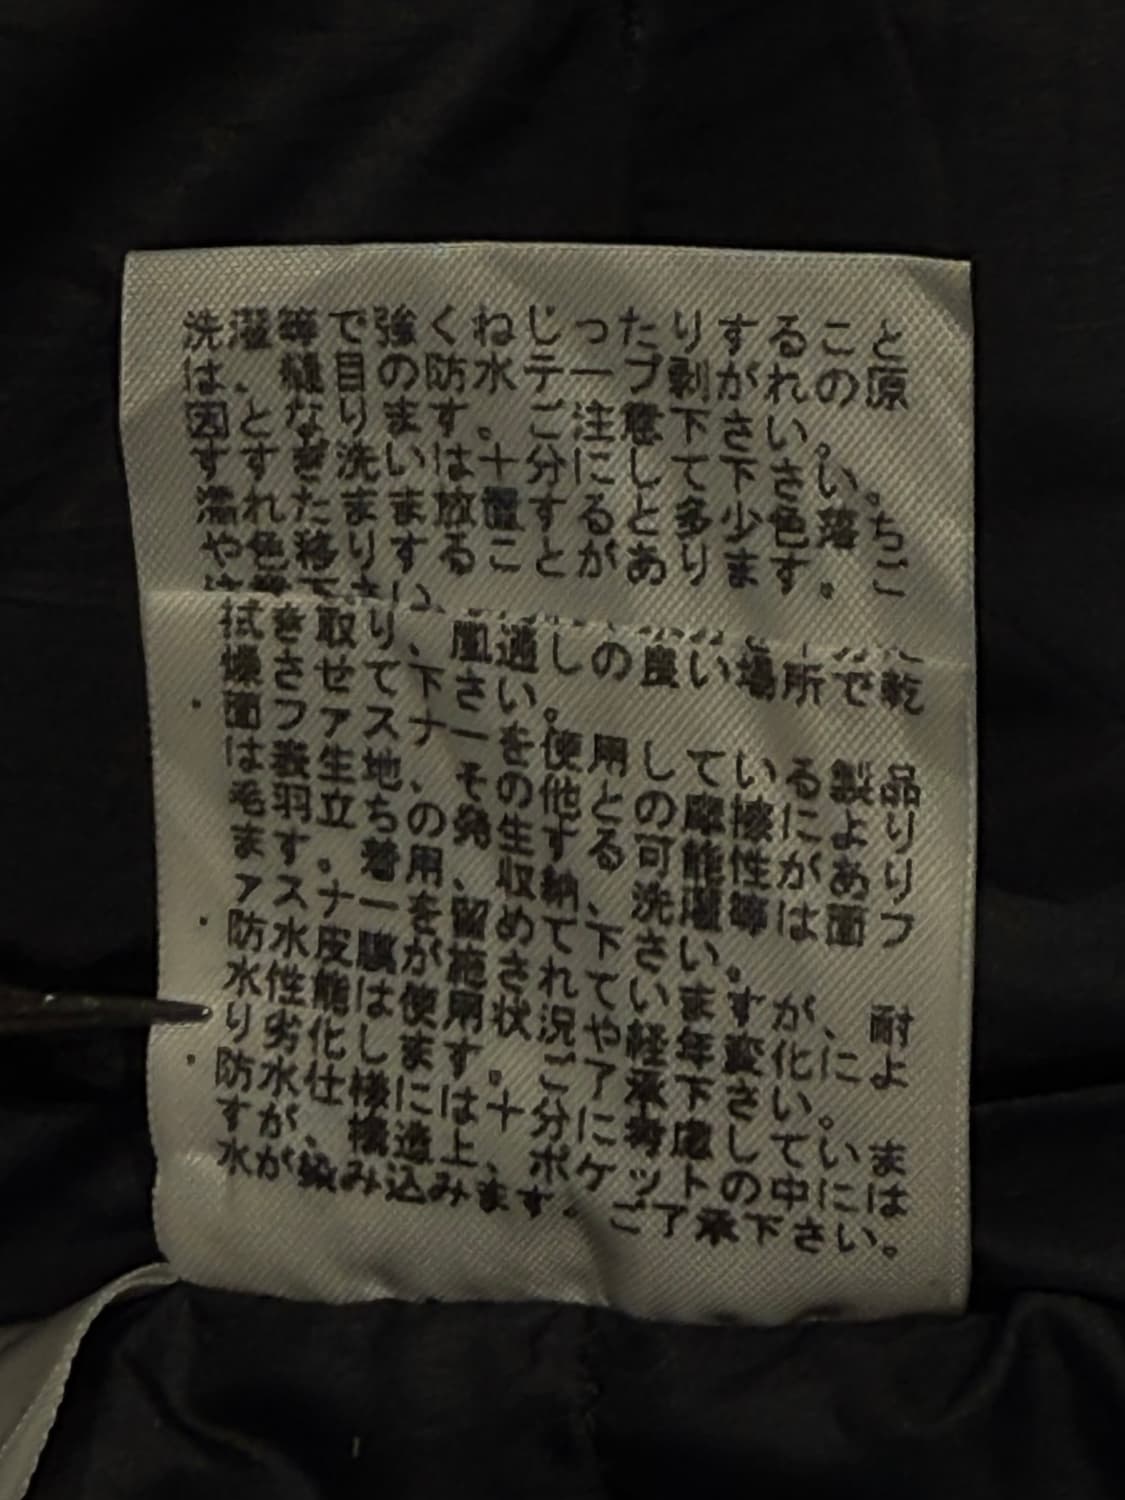 洗濯等で強くねじったりすること
は、縫目の防水テープ剥がれの原
因となります。ご注意下さい。
すすぎ洗いは十分にして下さい。
濡れたまま放置すると多少色落ち
や色移りすることがあります。ご
拭き取り、風通しの良い場所で乾
燥させて下さい。
・面ファスナーを使用している製品
は表生地、その他との摩擦により
毛羽立ちの発生する可能性があり
ます。着用、収納、洗濯等は面フ
ァスナーを留めて下さい。
・防水皮膜が施されていますが、耐
水性能は使用状況や経年変化によ
り劣化します。ご了承下さい。
・防水仕様には十分に考慮していま
すが、構造上、ポケットの中には
水が染み込みます。ご了承下さい。